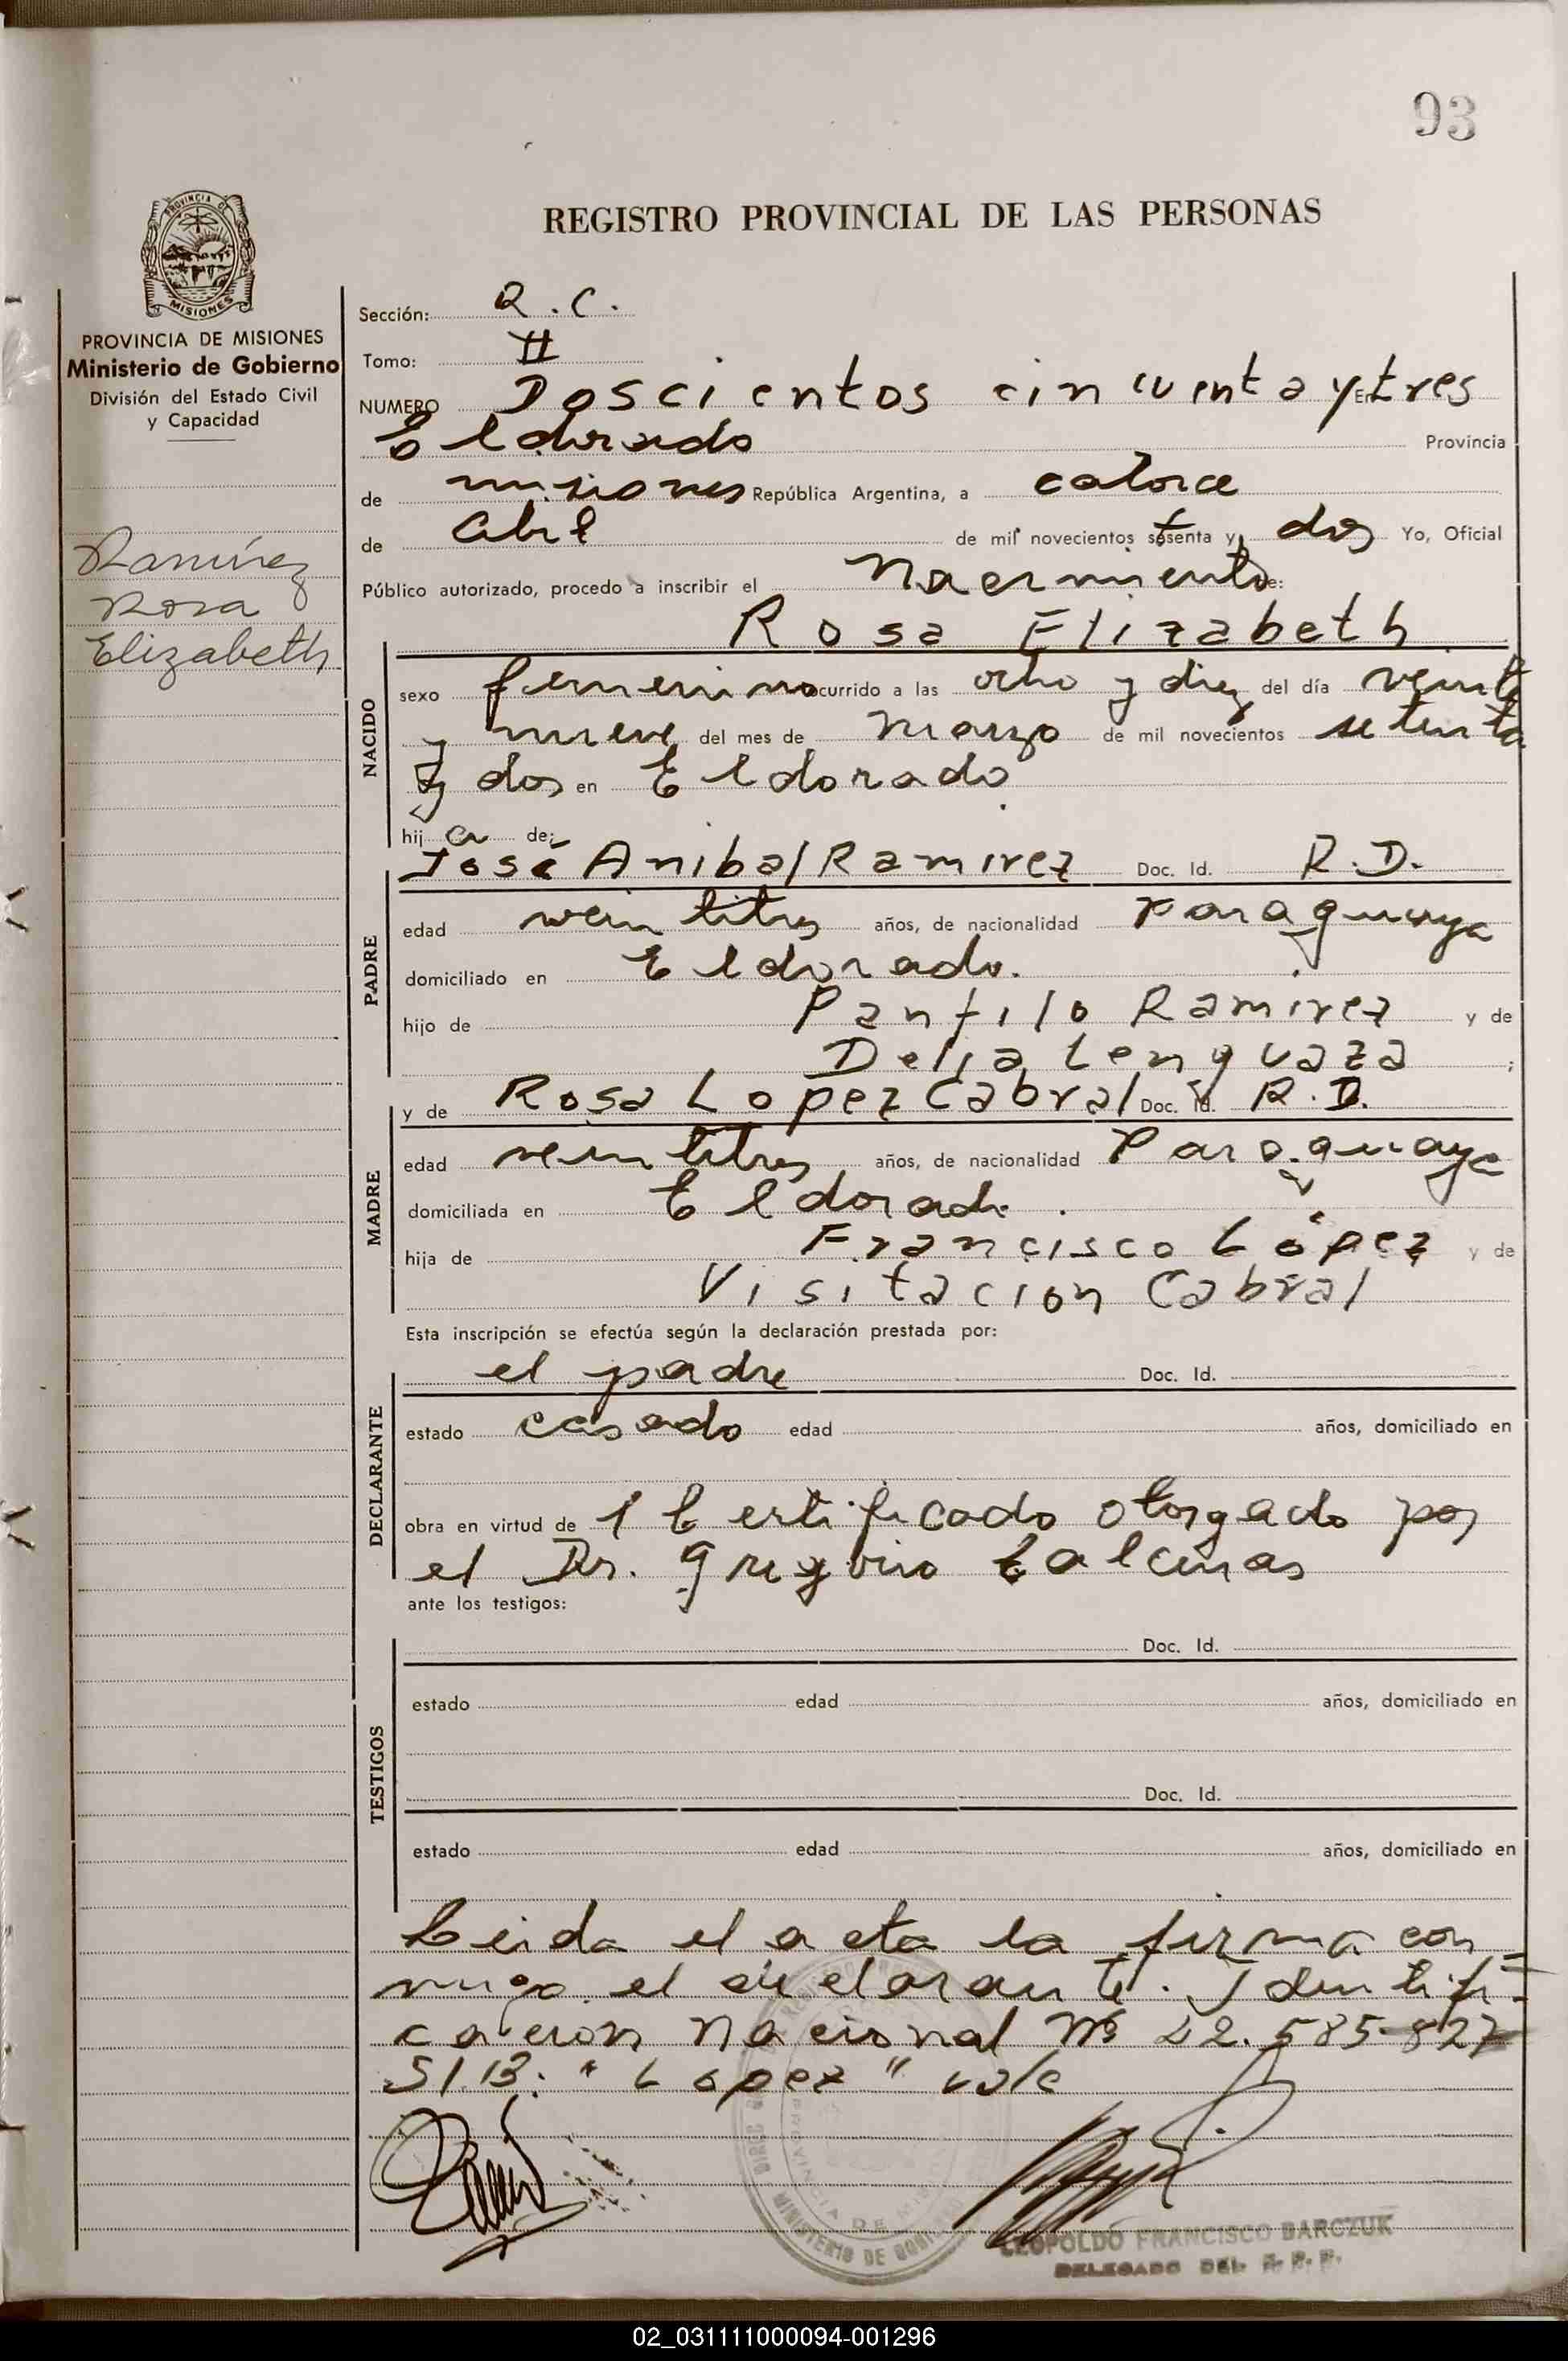 93
REGISTRO PROVINCIAL DE LAS PERSONAS
PROVINCIA DE
MISIONES
PROVINCIA DE MISIONES
Ministerio de Gobierno
División del Estado Civil
y Capacidad
Ramírez
Rosa
Elizabeth
Sección: R.C.
Tomo: II
NUMERO Doscientos cincuenta y tres En
Eldorado Provincia
de misiones República Argentina, a catorce
de abril de mil novecientos setenta y dos Yo, Oficial
Público autorizado, procedo a inscribir el Nacimiento de:
Rosa Elizabeth
NACIDO
sexo femenino ocurrido a las ocho y diez del día veinte
y nueve del mes de marzo de mil novecientos setenta
y dos en Eldorado
hija de:
PADRE
José Anibal Ramirez Doc. Id. R.D.
edad veintitres años, de nacionalidad Paraguaya
domiciliado en Eldorado.
hijo de Panfilo Ramirez y de
Delia Lenguaza ;
MADRE
y de Rosa Lopez Cabral Doc. Id. R.D.
edad veintitres años, de nacionalidad Paraguaya
domiciliada en Eldorado.
hija de Francisco López y de
Visitacion Cabral
Esta inscripción se efectúa según la declaración prestada por:
DECLARANTE
el padre Doc. Id.
estado casado edad años, domiciliado en
obra en virtud de 1 Certificado otorgado por
el Dr. Gregorio Calcinas
ante los testigos:
TESTIGOS
Doc. Id.
estado edad años, domiciliado en
Doc. Id.
estado edad años, domiciliado en
Leida el acta la firma con-
migo el declarante. Identifi-
cación Nacional Nº 22.585.827
S/B: "López" vale
PROVINCIA DE
MINISTERIO DE GOBIERNO
LEOPOLDO FRANCISCO BARCZUK
DELEGADO DEL R. P. P.
02_031111000094-001296